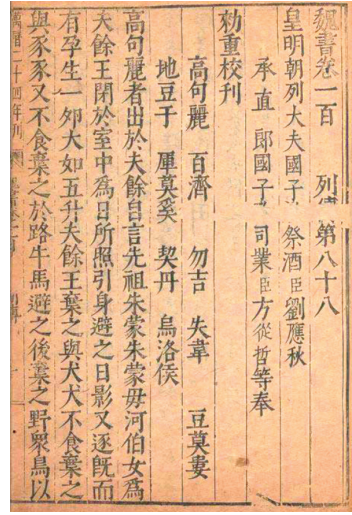 魏書卷一百　列傳第八十八
皇明朝列大夫國子　祭酒臣劉應秋
承直郎國子　司業臣方從哲等奉
勑重校刊
高句麗　百濟　勿吉　失韋　豆莫婁
地豆于　庫莫奚　契丹　烏洛侯
高句麗者出於夫餘自言先祖朱蒙朱蒙母河伯女爲
夫餘王閉於室中爲日所照引身避之日影又逐既而
有孕生一卵大如五升夫餘王棄之與犬犬不食棄之
與豕豕又不食棄之於路牛馬避之後棄之野衆鳥以
萬曆二十四年刊